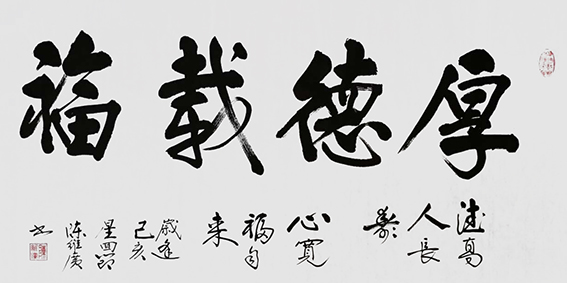 厚德載福
德高
人長
壽
心寬
福自
来
歲逢
己亥
星回節
陳維廣
书